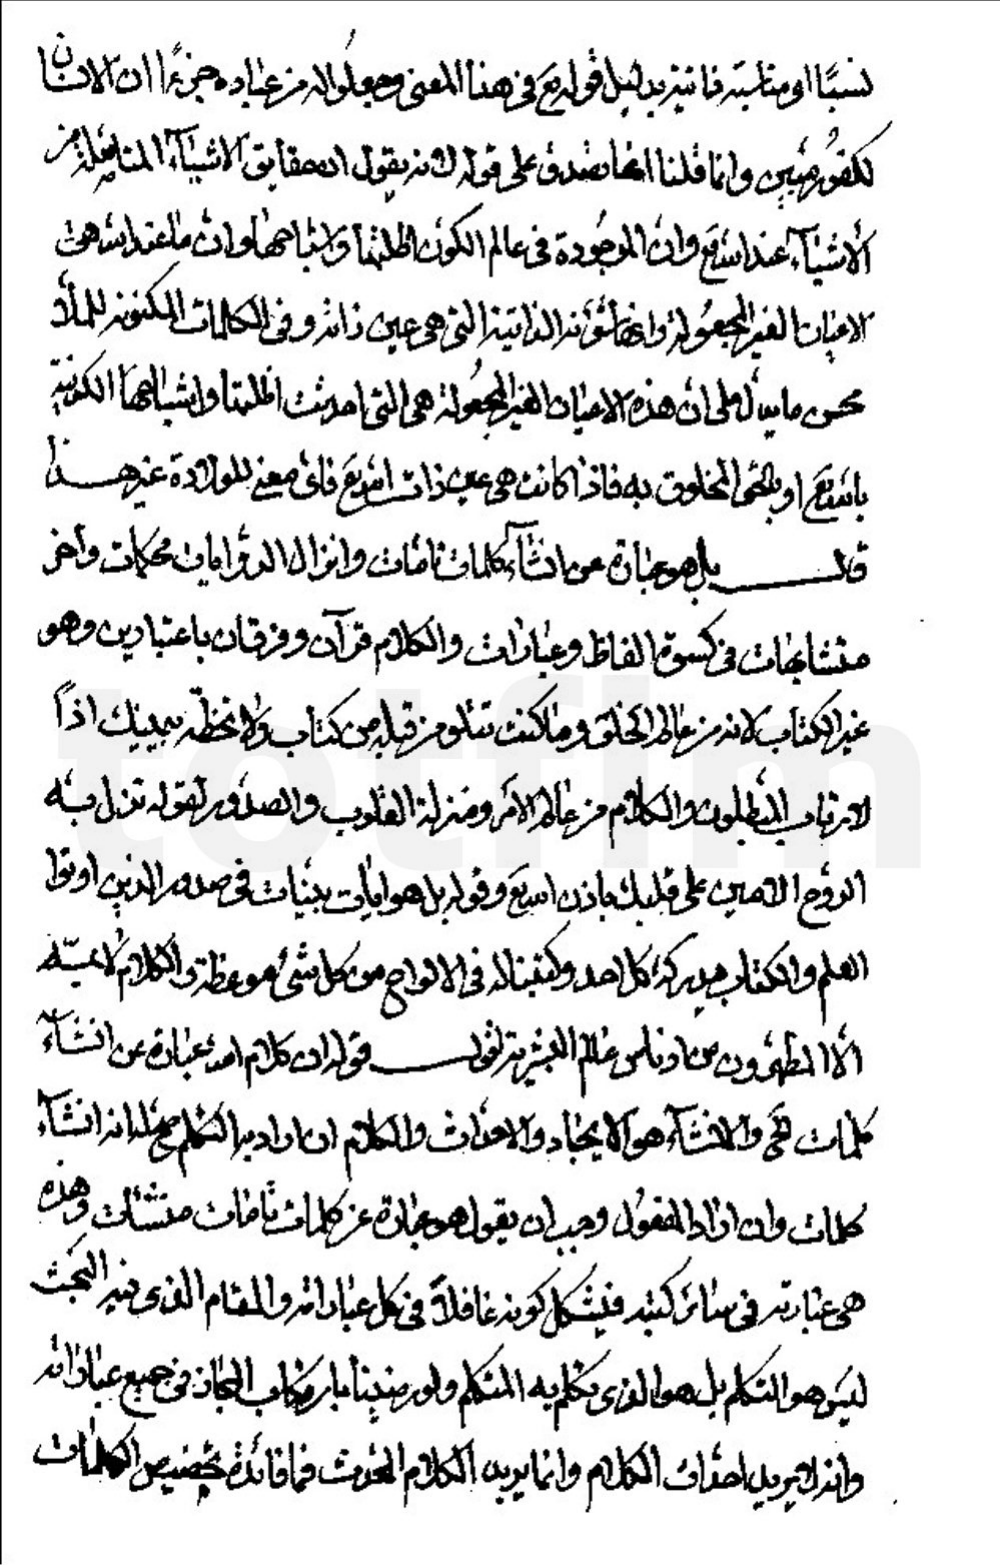 نسبًا او مناسبة فانيّة بدليل قوله تع في هذا المعنى وجعلوا له من عباده جزءًا ان الانسان
لكفور مبين وانما قلنا انها تصدق على قوله لانه يقول ان حقايق الاشياء المتاصلة من
الاشياء عند الله تع وان الموجودة في عالم الكون اظلتها واشباحها وان ما عند الله هي
الاعيان الغير المجعولة وانها شؤنه الذاتية التي هي عين ذاته وفي الكلمات المكنونه للملا
محسن ما يدل على ان هذه الاعيان الغير المجعولة هي التي احدثت اظلتها واشباحها الكونية
بالله تع او بالحق المخلوق به فاذا كانت هي عين ذات الله تع فاى معنى للولادة غير هـــذا
قالـــــ بل هو عبارة عن انشآء كلمات تامات وانزال ايات محكمات واخر
متشابهات في كسوة الفاظ وعبارات والكلام قرآن وفرقان باعتبارين وهو
غير الكتاب لانه من عالم الخلق وما كنت تتلو من قبله من كتاب ولا تخطّه بيمينك اذاً
لارتاب المبطلون والكلام من عالم الامر ومنزله القلوب والصدور لقوله نزل به
الروح الامين على قلبك باذن الله تع وقوله بل هو ايات بينات في صدور الذين اوتوا
العلم والكتاب يدركه كل احد وكتبنا له في الالواح من كل شئ موعظة والكلام لا يمسّه
الا المطهرون من ادناس عالم البشرية اقولـــــ قوله ان كلام الله عبارة عن انشآء
كلمات الخ والانشآء هو الايجاد والاحداث والكلام ان اراد به التكلم صح لانه انشآء
كلمات وان اراد المفعول وجب ان يقول هو عبارة عن كلمات تامات منشئات وهذه
هي عبارته في سائر كتبه فيشكل كونه غافلاً في كل عباراته والمقام الذى فيه البحث
ليس هو التكلم بل هو الذى تكلم به المتكلم ولو رضينا بارتكاب المجاز في جميع عباراته
وانه لا يريد احداث الكلام وانما يريد الكلام المحدث فما فائدة تخصيص الكلمات